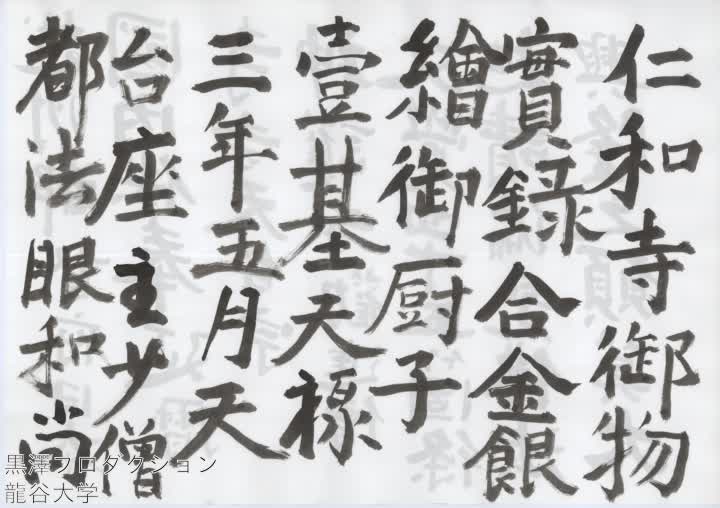 仁和寺御物
實録合金銀
繪御厨子
壹基天禄
三年五月天
台座主少僧
都法眼和尚
黒澤プロダクション
龍谷大学